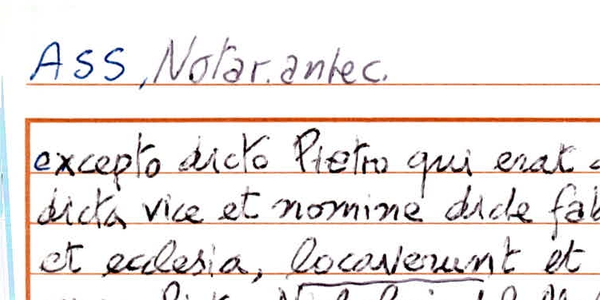 ASS, Notar. antec.
excepto dicto Pietro qui erat
dicta vice et nomine dicte fab
et ecclesia, locaverunt et